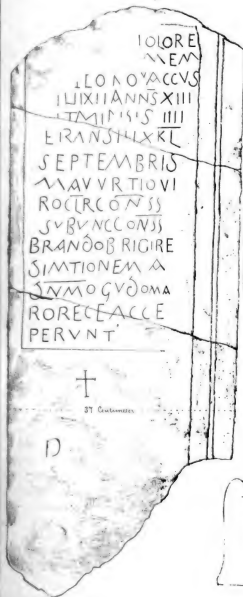 IOLORE
MEM
ILONOVACCVS
IIIIXIIANNSXIII
ITMINISIS IIII
ERANSIIIXKL
SEPTEMBRIS
MAVVRTIOVI
ROCTRCONSS
SVBVNCCONSS
BRANDOBRIGIRE
SIMTIONEM A
SNMOGVDOMA
RORECEACCE
PERVNT
37 Centimeter
D